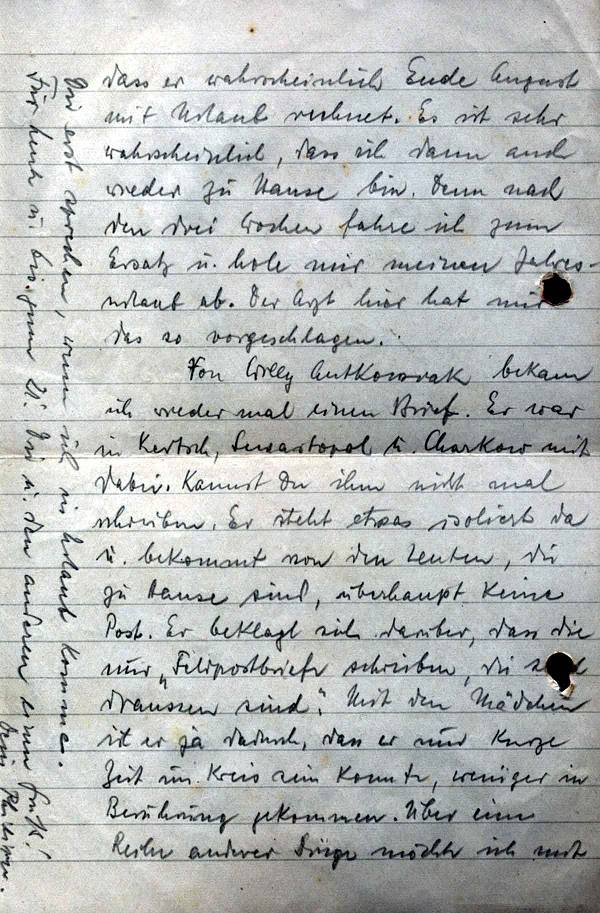 dass er wahrscheinlich Ende August
mit Urlaub rechnet. Es ist sehr
wahrscheinlich, dass ich dann auch
wieder zu Hause bin. Denn nach
den drei Wochen fahre ich zum
Ersatz u. hole mir meinen Jahres-
urlaub ab. Der Arzt hier hat mir
das so vorgeschlagen.
Von Willy Gutkowak bekam
ich wieder mal einen Brief. Er war
in Kertsch, Sewastopol u. Charkow mit
dabei. Kannst Du ihm nicht mal
schreiben. Er steht etwas isoliert da
u. bekommt von den Leuten, die
zu Hause sind, überhaupt keine
Post. Er beklagt sich darüber, dass die
nur „Feldpostbriefe schreiben, die
draussen sind". Mit den Mädchen
ist er ja dadurch, dass er nur kurze
Zeit im Kreis sein konnte, weniger in
Berührung gekommen. Über eine
Reihe anderer Dinge möchte ich mit
Dir erst sprechen, wenn ich in Urlaub komme.
Für heute u. bis zum 21. Dir u. den anderen einen Gruß!
Dein